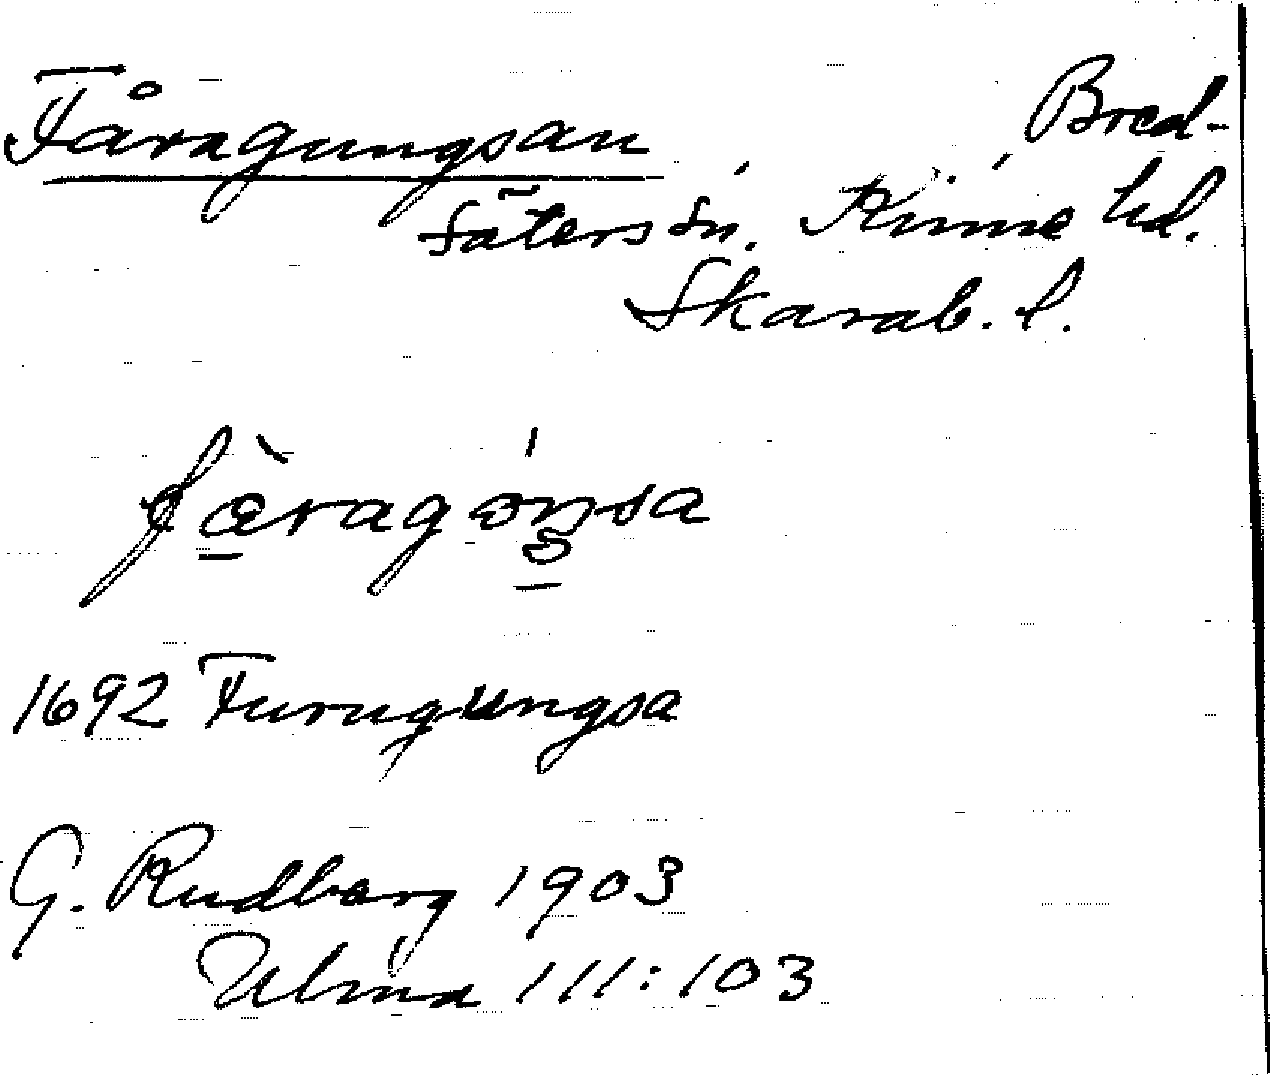 Fåragungsan Bred-
säters sn. Kinne hd.
Skarab. l.
fæ̀ragɷ́ŋsa
1692 Furugungsa
G. Rudberg 1903
Ulma 111:103